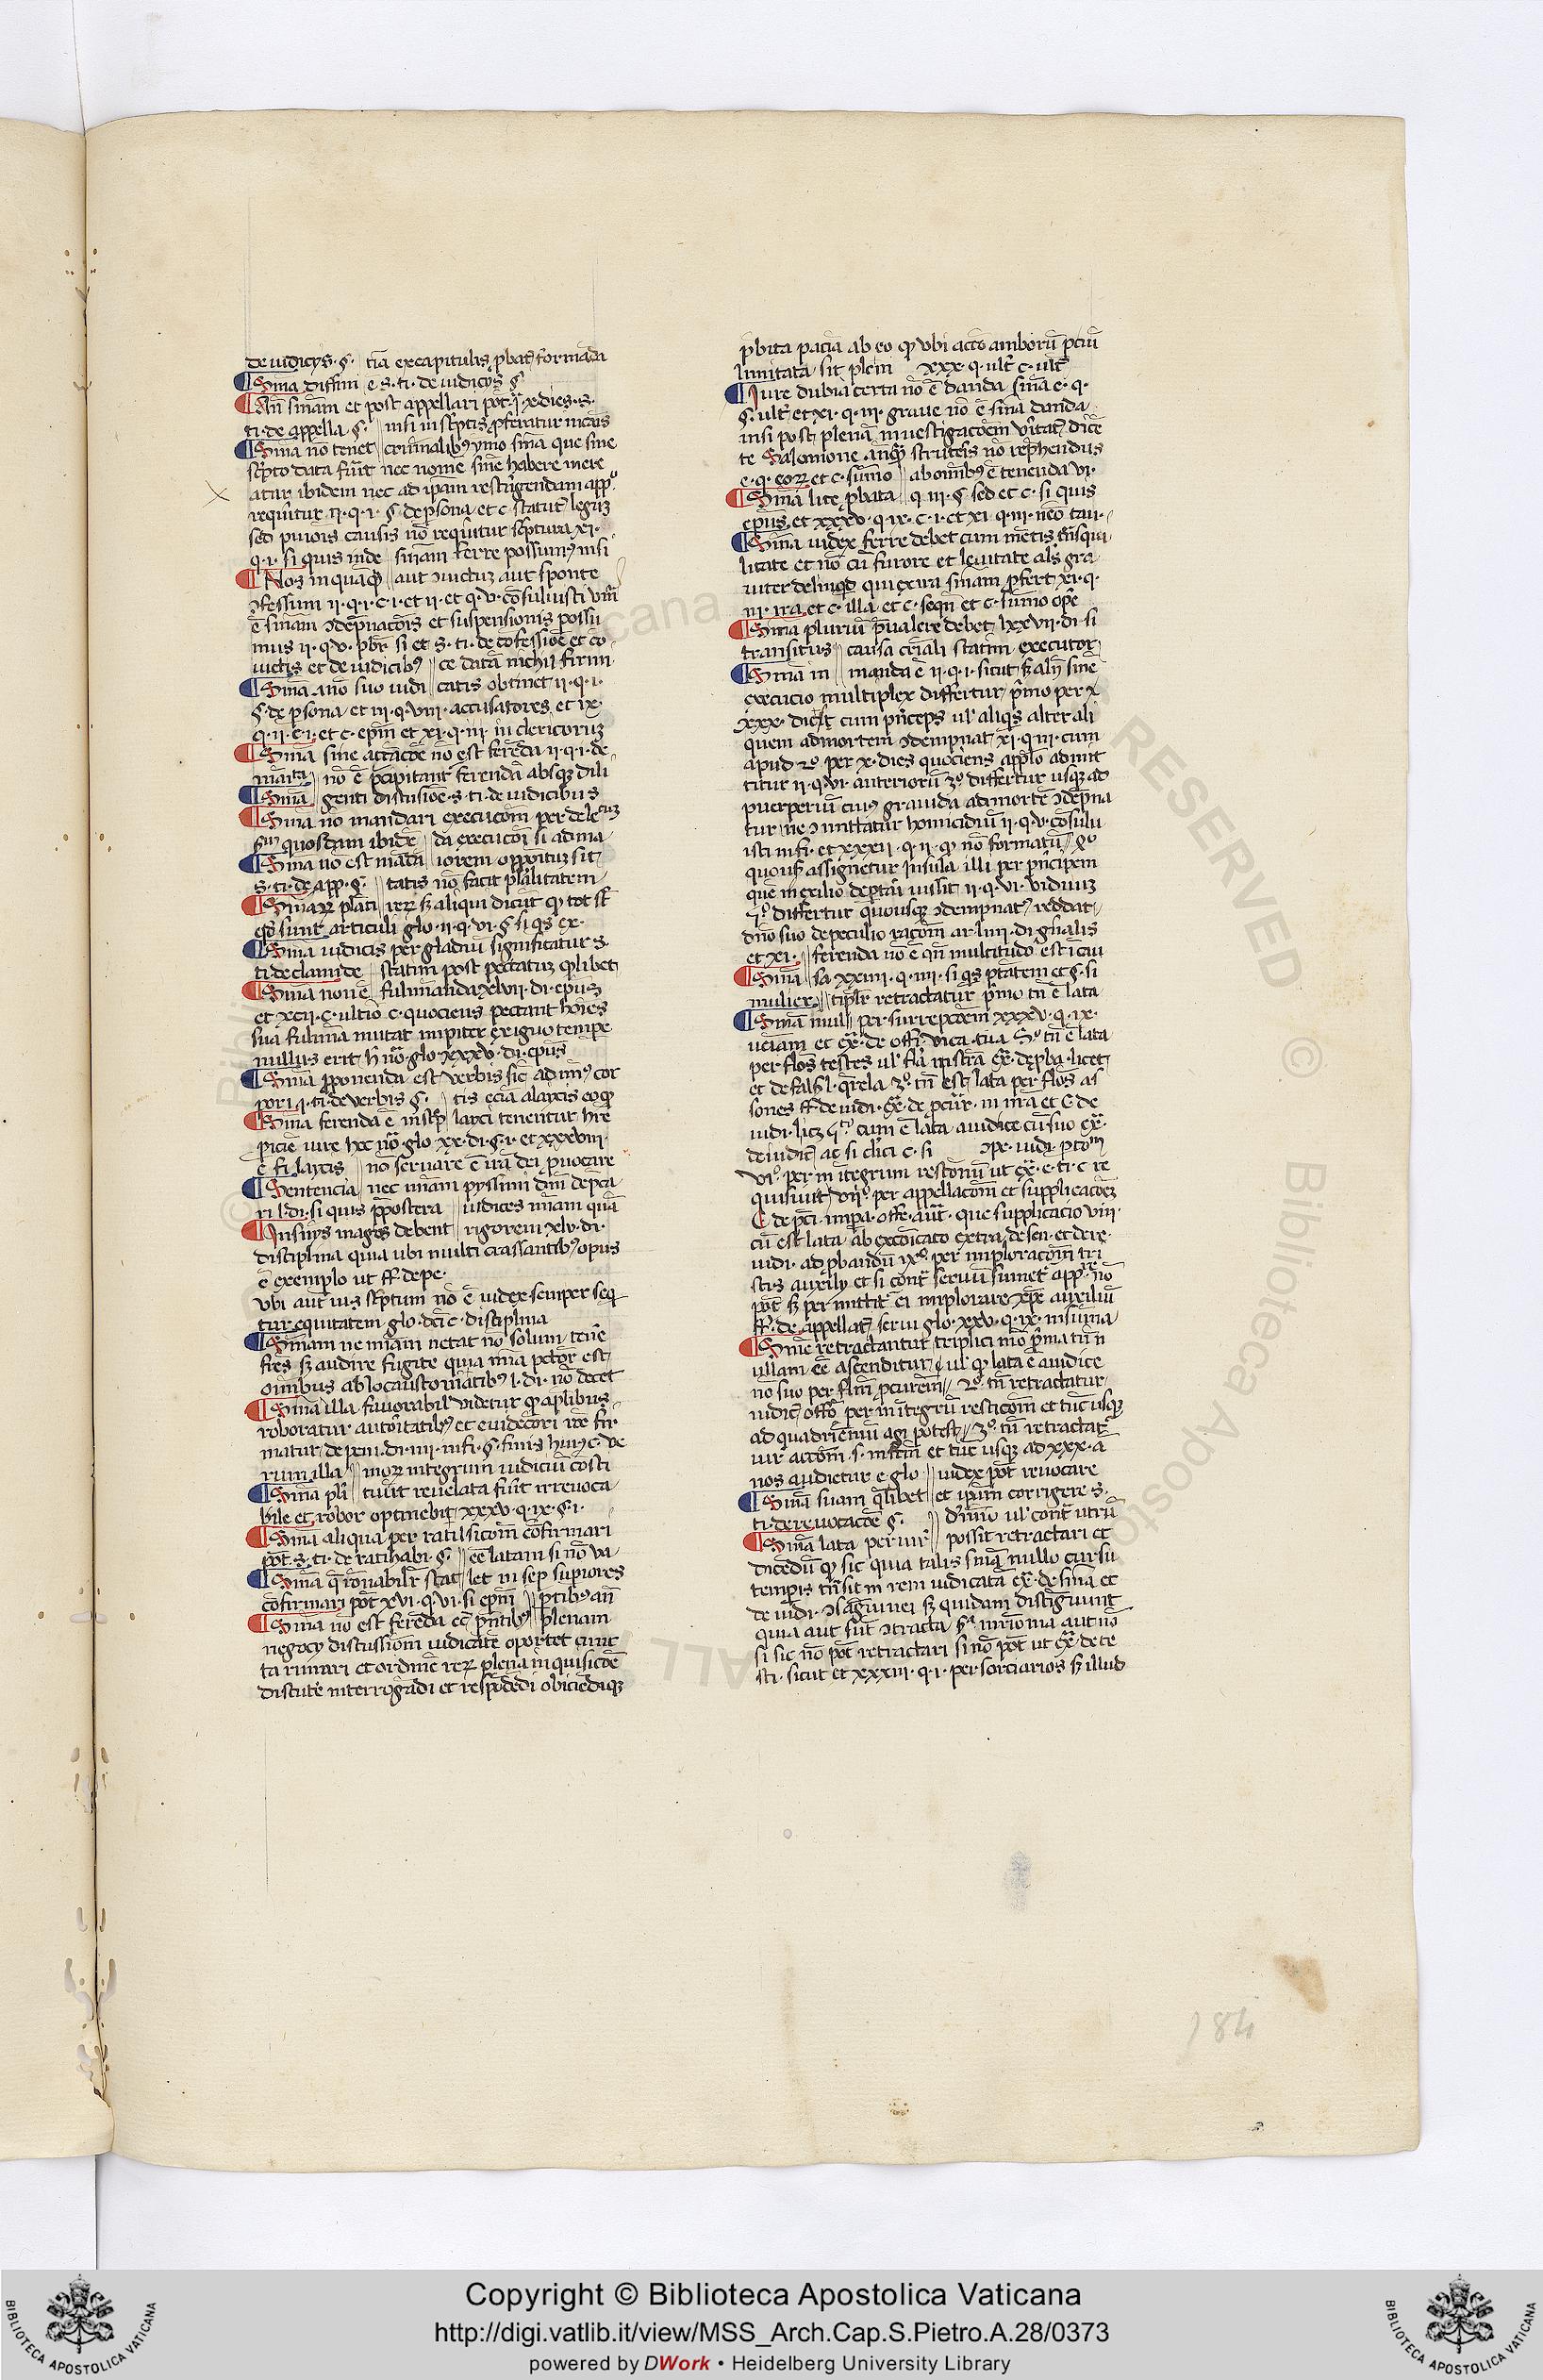 de iudicijs · § · tiā ex capitulis ꝓbat̄ formāda
Sn̄ia diffini e · s · ti · de iudicijs §
An sn̄iam et post appellari pōt · x · dies · s ·
ti · de appella · § · nisi in scͥptis ꝓferatur in cāis
Sn̄ia nō tenet cͥminalibꝰ ymo sn̄ia que sine
scͥpto data fūit nec nomē sn̄ie habere mere
atur ibidem nec ad ip̄am restrīgendam app
requirītur ii · q · i · § de ꝑsona et c statut̄ legūz
sed in minoris causis nō requirītur scͥptura xi ·
q · i · si quis inde sn̄iam ferre possumꝰ nisi
Nos in quāqȝ aut ɔuictuȝ aut sponte
ɔfessum ii · q · i · c · i · et ii · et q · v · cōsuluisti
ē sn̄iam ɔdēpnacōis et suspensionis possu
mus ii · q · v · p̄br̄ si et s · ti · de cōfessiōe et cō
uictis et de iudicibꝰ ce datā nichil firmi
Sn̄ia a nō suo iudi catis obtinet ii · q · i ·
§ · de ꝑsona et iii · q · viii · accusatores et ix ·
q · ii · c · i · et c · ep̄m et xi · q · iii · in clericoruȝ
Sn̄ia sine actacōe nō est ferēda ii · q · i · de
māita nō ē p̄cipitant̄ ferenda absqȝ dili
Sn̄ia genti discusiōe · s · ti · de iudicibus
Sn̄ia nō mandari execucōm per delecͭuȝ
quosdam ibidē da execucōi si ad ma
Sn̄ia nō est māda iorem opponituȝ sit
s · ti · de app · § · tatis nō facit pl̄alitatem
Sn̄iaꝝ pl̄ati reꝝ sȝ aliqui dicūt ꝙ tot sūt
qͦ sunt articuli glo · ii · q · vi · § si qͥs ex ·
Sn̄ia iudicis per gladiū significatur s ·
ti · de clami de statim post peccatuȝ qͥlibet
Sn̄ia non ē fulminanda xlvii · di · ep̄us
et xcii · c · ultio c · quociens peccant hoīes
sua fulmina mittat iupiter exiguo tempe
nullus erit h̄ nō glo xxxv · di · ep̄us
Sn̄ia ꝓponenda est verbis sic ad inꝰ cor
pori i · ti · de verbis § · tis eciā a laycis eo ꝙ
Sn̄ia ferenda ē in scͥp layci tenentur h̄re
picie iure hoc nō glo xx · di · § · i · et xxxviii ·
c̄ si laycis nō seruare ē irā dei ꝓuocare
Sentencia nec unā pyssimi dn̄i depca
ri l · di · si quis p̄postera iudices miam quā
In suijs magis debent rigorem xlv · di ·
disciplina quia ubi multi crassantibꝰ opus
ē exemplo ut ff · de pe ·
Vbi aut̄ ius scͥptum nō ē iudex semper seq
tur equitatem glo · dc̄i c · disciplina
Sn̄iam ne miam netat nō solum tene
fr̄es sȝ audire fugite quia mia pctor est
oībus ab locausto matibꝰ l · di · nō decet
Sn̄ia illa fauorabil̄ videtur ꝙ apl̄ibus
roboratur autoritatibꝰ et euidēciori rōe fir
matur de peni · di · iiii · in fi · § · finis huiꝰ c · ve
rum illa moꝝ integrum iudiciū cōsti
Sn̄ia pl̄i tuūt reuelata fūit irreuoca
bile et robor optinebit xxxv · q · ix · § · i ·
Sn̄ia aliqua per ratificicōm cōfirmari
pōt · s · ti · de ratihabi · § · eē latam si nō va
Sn̄ia qͥ rōnabilr̄ stat let in sep supiores
cōfirmari pōt xvi · q · vi · si ep̄m ptibꝰ an̄
Sn̄ia nō est ferēda ec p̄ntibꝰ plenam
negocij discussiōm iudicāte oportet cunc
ta rimari et ordinē reꝝ plena inquisicōe
discutē interrogādi et respōdēdi obiciēdiqȝ
ꝓbita paciā ab eo ꝙ vbi actō amborū ꝑciū
limitata sit plein xxx · q · ult̄ c · ult̄
Iure dubia certa nō ē danda sn̄ia e · q ·
§ · ult̄ et xi · q · iii · graue nō ē sn̄ia danda
nisi post plenā inuestigacōem v̄itat̄ dicē
te Salomone anqͣ scruteis nō rep̄hendus
e · q · eoꝝ et c · sūmo ab oīnibꝰ ē tenenda vi ·
Sn̄ia lite ꝓbata q iii · § sed et c · si quis
ep̄us et xxxv · q · ix · c · i · et xi q · iii · nēo tau ·
Sn̄ia iudex ferre debet cum mētis tn̄sqͥui
litate et nō cū furore et leuitate als̄ gra
uiter delinqͥt qui extra sn̄iam ꝓfert xi · q ·
iii · ira et c · illa et c · seqn̄ et c · sūmo opē
Sn̄ia plurīū p̄ualere debet lxxvii · di · si
transitus causa crīali statim executor
Sn̄ia in manda ē ii · q · i · sicut sȝ al̄n sine
execucio multiplex differtur p̄mo per x
xxx · dies cum p̄nceps ul̄ aliqͥs alter ali
quem ad mortem ɔdempnat xi · q · iii · cum
apud 2ͦ · per x · dies quociens app̄lo admit
titur ii · q · vi · anteriorū 3ͦ · differtur usqȝ ad
puerperiū cuiꝰ grauida ad mortē ɔdēpna
tur ne ɔmittatur homicidiū ii · q · v · cōsulu
isti in fi · et xxxii · q · ii · ꝙ nō formatū · 4ͦ
quousqȝ assignetur Insula illi per p̄ncipem
quē in exilio deportari iussit ii · q · vi · viduuȝ
5ͦ · differtur quousqȝ ɔdempnatꝰ reddat
dn̄o suo de peculio racōm ar · liiii · di · gn̄alis
et xi · ferenda nō ē qn̄ multitudo est i cau
Sn̄ia sa xxiiii · q · iiii · si qͥs ptatem et § · si
mulier tiplr̄ retractatur p̄mo tn̄ ē lata
Sn̄ia mul per surrepcōem xxxv · q · ix ·
ueniam et ex̄ · de offi · vica · tua 2ͦ · tn̄ ē lata
per flos̄ testes ul̄ fl̄a instr̄a ex̄ · de ꝓba · licet
et de fals̄ l · qͥrela 3ͦ · tn̄ est lata per flos̄ as
sones ff · de iudi · ex̄ · de pcur̄ · in nr̄a et C de
iudi · licȝ 4ͭͦ cum ē lata a iudice cū suo ex̄ ·
de iudic̄ ac si cl̄ici c · si ɔpe · iudi · pcto
viͦ · per in integrum restōnū ut ex̄ · e · ti · c re
quisiuit viiͦ · per appellacōm et supplicacōeȝ
C de p̄ci · impa · offe · aut̄ · que supplicacio viii ·
cū est lata ab excōicato extra de sen · et de re ·
iudi · ad ꝓbandū ixͦ · per imploracōm tri
stis auxilij et si contͣ seruū fuit app · nō
pōt sȝ permittit̄ ei implorare xp̄e auxiliū
ff · de appellat̄ serui glo · xxv · q · ix · in sūma
Sn̄ie retractantur triplici mō p̄ma tn̄ n̄
ullam eē ascenditur ul̄ ꝙ lata ē a iudice
nō suo per fl̄m pcurem 2ͦ · tn̄ retractatur
iudic̄ offo per in integrū resticōm et tūc usqȝ
ad quadriēniū agi potest 3ͦ · tn̄ retractat̄
iur accōm · s · inst̄m et tūc usqȝ ad xxx · ā
nos audietur e glo iudex pōt reuocare
Sn̄iā suam qͥlibet et ip̄am corrigere s ·
ti · de reuocacōe § · dimō ul̄ contͣ utrū
Sn̄ia lata per iur̄ possit retractari et
dicēdū ꝙ sic quia talis sn̄ia nullo cursu
tempis tn̄sit in rem iudicatā ex̄ · de sn̄ia et
de iudi · ɔsāguinei sȝ quidam distīguunt
quia aut sūt ɔtracta sͣ mr̄imonia aut nō
si sic nō pōt retractari si nō pōt ut ex̄ · de te
sti · sicut et xxxiii · q · i · per sorciarios sȝ illud
184
Copyright © Biblioteca Apostolica Vaticana
http://digi.vatlib.it/view/MSS_Arch.Cap.S.Pietro.A.28/0373
powered by DWork • Heidelberg University Library
BIBLIOTECA APOSTOLICA VATICANA
BIBLIOTECA APOSTOLICA VATICANA